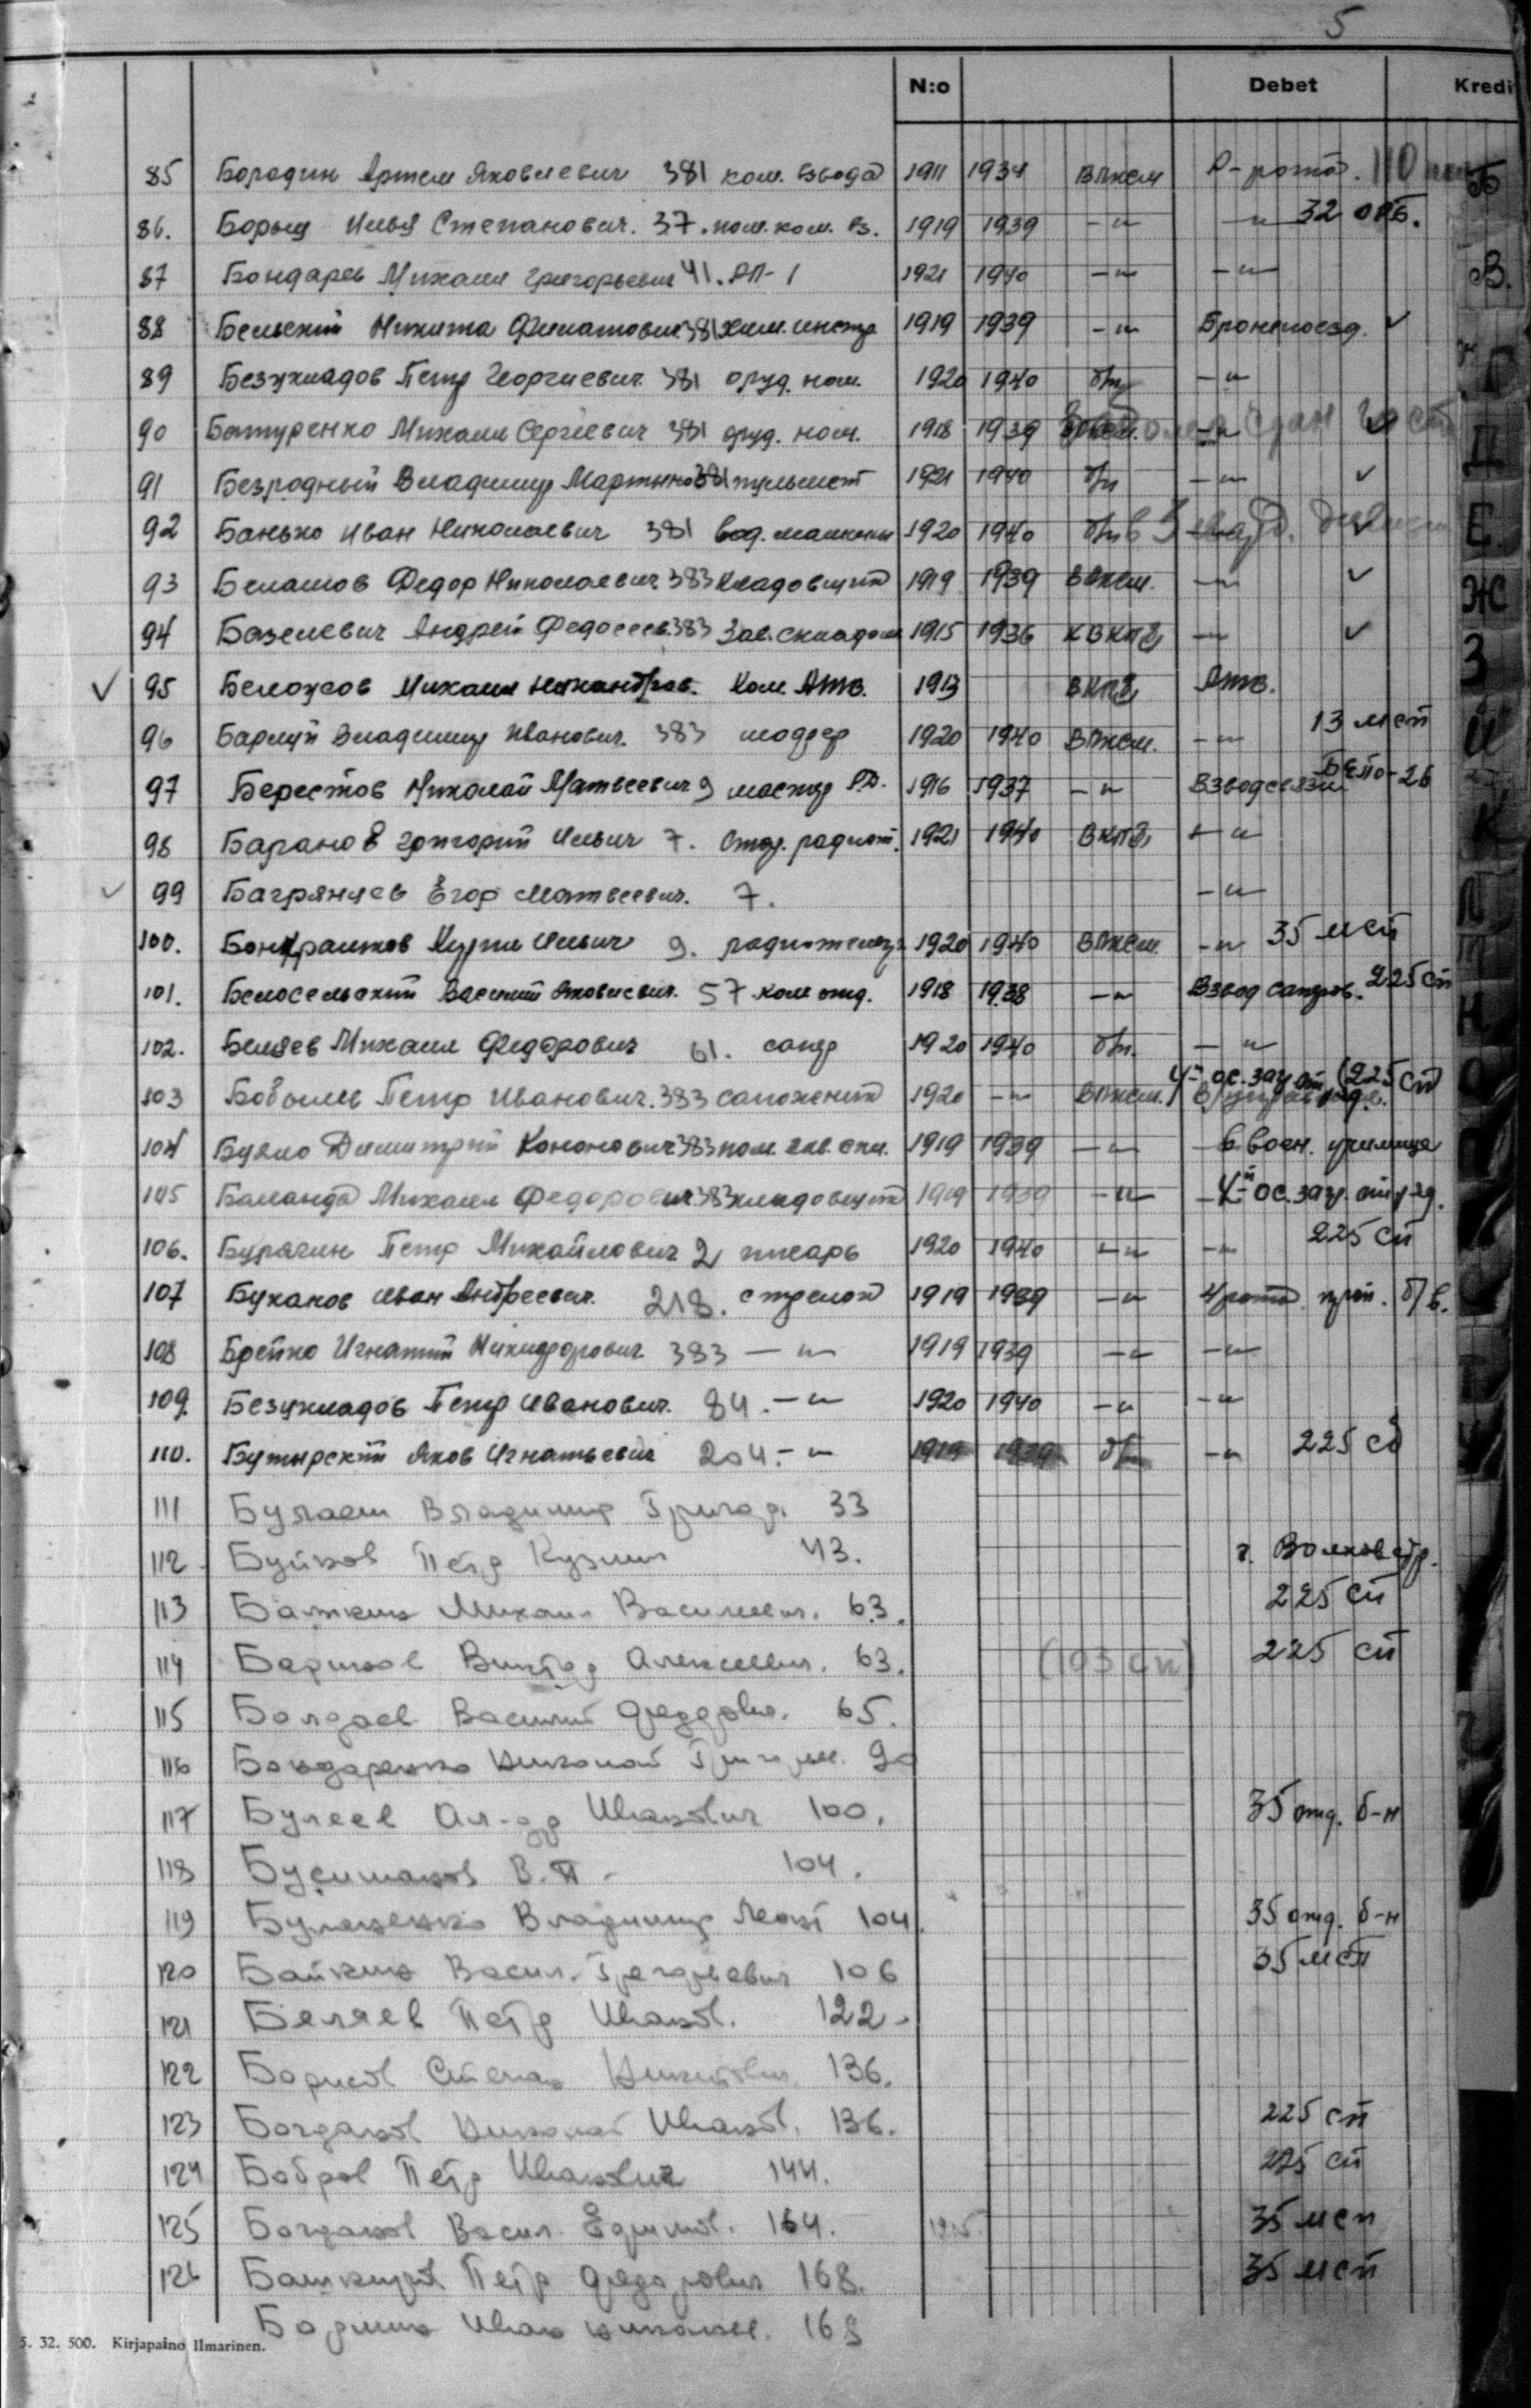 5
N:o Debet Kredi
85 Бородин Артем Яковлевич 381 ком. взвода 1911 1934 ВЛКСМ Р-рота. 110
86. Борыщ Илья Степанович. 37. пом. ком. вз. 1919 1939 -"- -"- 32 опб.
87 Бондарев Михаил Григорьевич 41. РП-1 1921 1940 -"- -"-
88 Бельский Никита Филатович 381 хим. инстр 1919 1939 -"- Бронепоезд. ✓
89 Безукладов Петр Георгиевич 381 оруд. ном. 1920 1940 б/п -"-
90 Батуренко Михаил Сергеевич 381 оруд. ном. 1918 1939 -"- ✓
91 Безродный Владимир Мартыно 381 пульмет 1921 1940 б/п -"- ✓
92 Банько Иван Николаевич 381 вод. машины 1920 1940 б/п в ✓
93 Белашов Федор Николаевич. 383 Кладовщик 1919 1939 ВЛКСМ. -"- ✓
94 Базелевич Андрей Федосеев. 383 Зав. складом 1915 1936 КВКПб -"- ✓
✓ 95 Белоусов Михаил Никандров. Ком. Атв. 1913 ВКПб Атв.
96 Бармуй Владимир Иванович. 383 шофер 1920 1940 ВЛКСМ. -"- 13 мсп
97 Берестов Николай Матвеевич 9 мастер Р.Д. 1916 1937 -"- Взвод связи
98 Баранов Григорий Ильич 7. Стар. радист. 1921 1940 ВКПб -"-
✓ 99 Багрянцев Егор Матвеевич. 7. -"-
100. Ильич 9. 1920 1940 ВЛКСМ. -"- 35 мсп
101. Белосельский Василий Яковлевич. 57 ком отд. 1918 1938 -"- Взвод саперов. 225 сп
102. Беляев Михаил Федорович 61. сапер 1920 1940 б/п. -"-
103 Бобылев Петр Иванович. 383 сапожник 1920 -"- ВЛКСМ. (225 сп)
104 Димитрий Кононович 383 пом. зав. скл. 1919 1939 -"- в воен. училище
105 Баланда Михаил Федорович 383 кладовщик 1919 1939 -"-
106. Бурячин Петр Михайлович 2 писарь 1920 1940 -"- -"- 225 сп
107 Буханов Иван Андреевич. 218. стрелок 1919 1939 -"- 4 рота б/в.
108 Бройко Игнатий Никифорович. 383 -"- 1919 1939 -"- -"-
109. Безукладов Петр Иванович. 84. -"- 1920 1940 -"- -"-
110. Бутырский Яков Игнатьевич 204. -"- 1919 1939 б/п -"- 225 сд
111 Владимир Григор. 33
112 Буйков Петр Кузмич 43. г. Волховстр.
113 Бажкин Михаил Васильевич. 63. 225 сп
114 Виктор Алексеевич. 63. (103 сп) 225 сп
115 Болдаев Василий Федорович. 65.
116 Бондаренко Николай Григорьев. 90
117 Булеев Ал-др Иванович 100. 35 отд. б-н
118 В.П. 104.
119 Владимир 104. 35 отд. б-н
120 Байкин Васил. Григорьевич 106 35 мсп
121 Беляев Петр Иванов. 122.
122 Борисов Степан Никитович. 136.
123 Богданов Николай Иванов. 136. 225 сп
124 Бобров Петр Иванович 144. 225 сп
125 Богданов Васил. Ефимов. 164. 35 мсп
126 Башкиров Петр Федорович 168. 35 мсп
Иван Николаев. 168
5. 32. 500. Kirjapaino Ilmarinen.